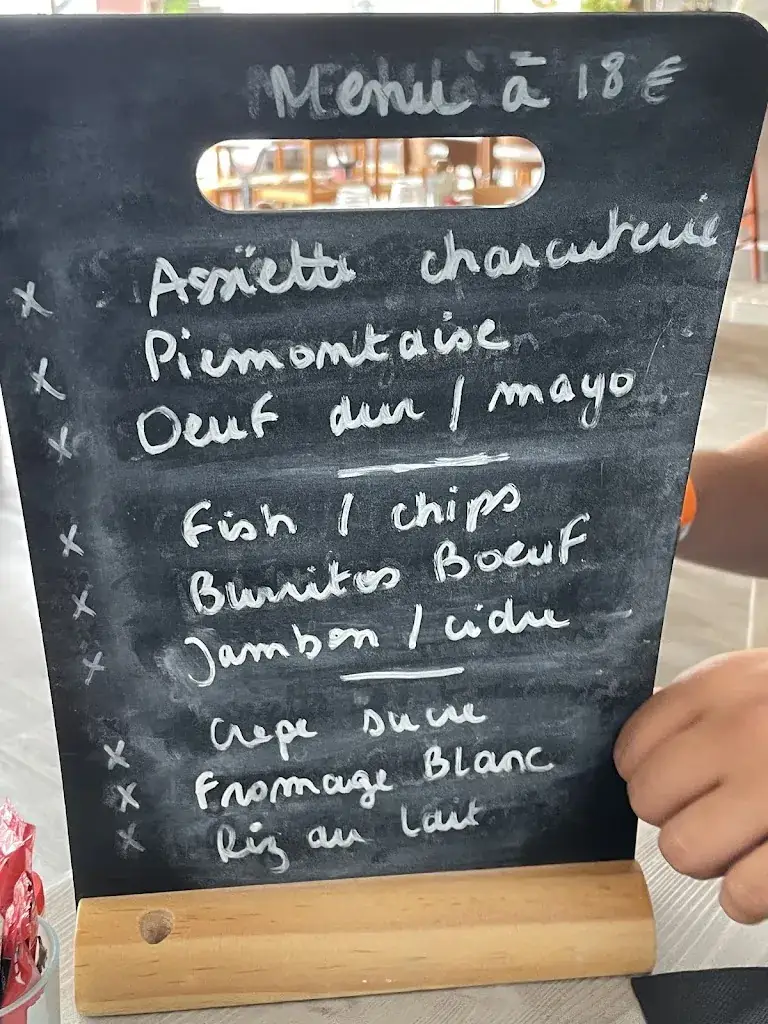 Menu à 18 €
x Assiette charcuterie
x Piemontaise
x Oeuf dur / mayo
x Fish / chips
x Burritos Boeuf
x Jambon / cidre
x Crepe sucre
x Fromage Blanc
x Riz au lait